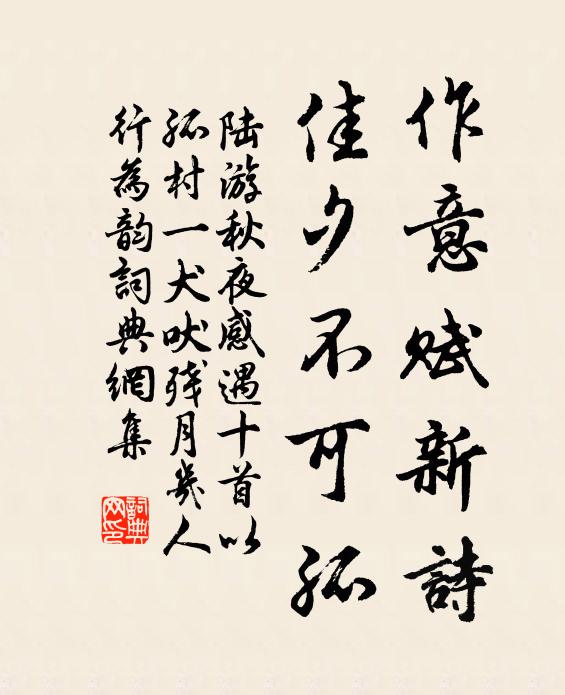 作意賦新詩
佳夕不可孤
陆游秋夜感遇十首以
孤村一犬吠残月幾人
行為韵詞典網集
詞典网印